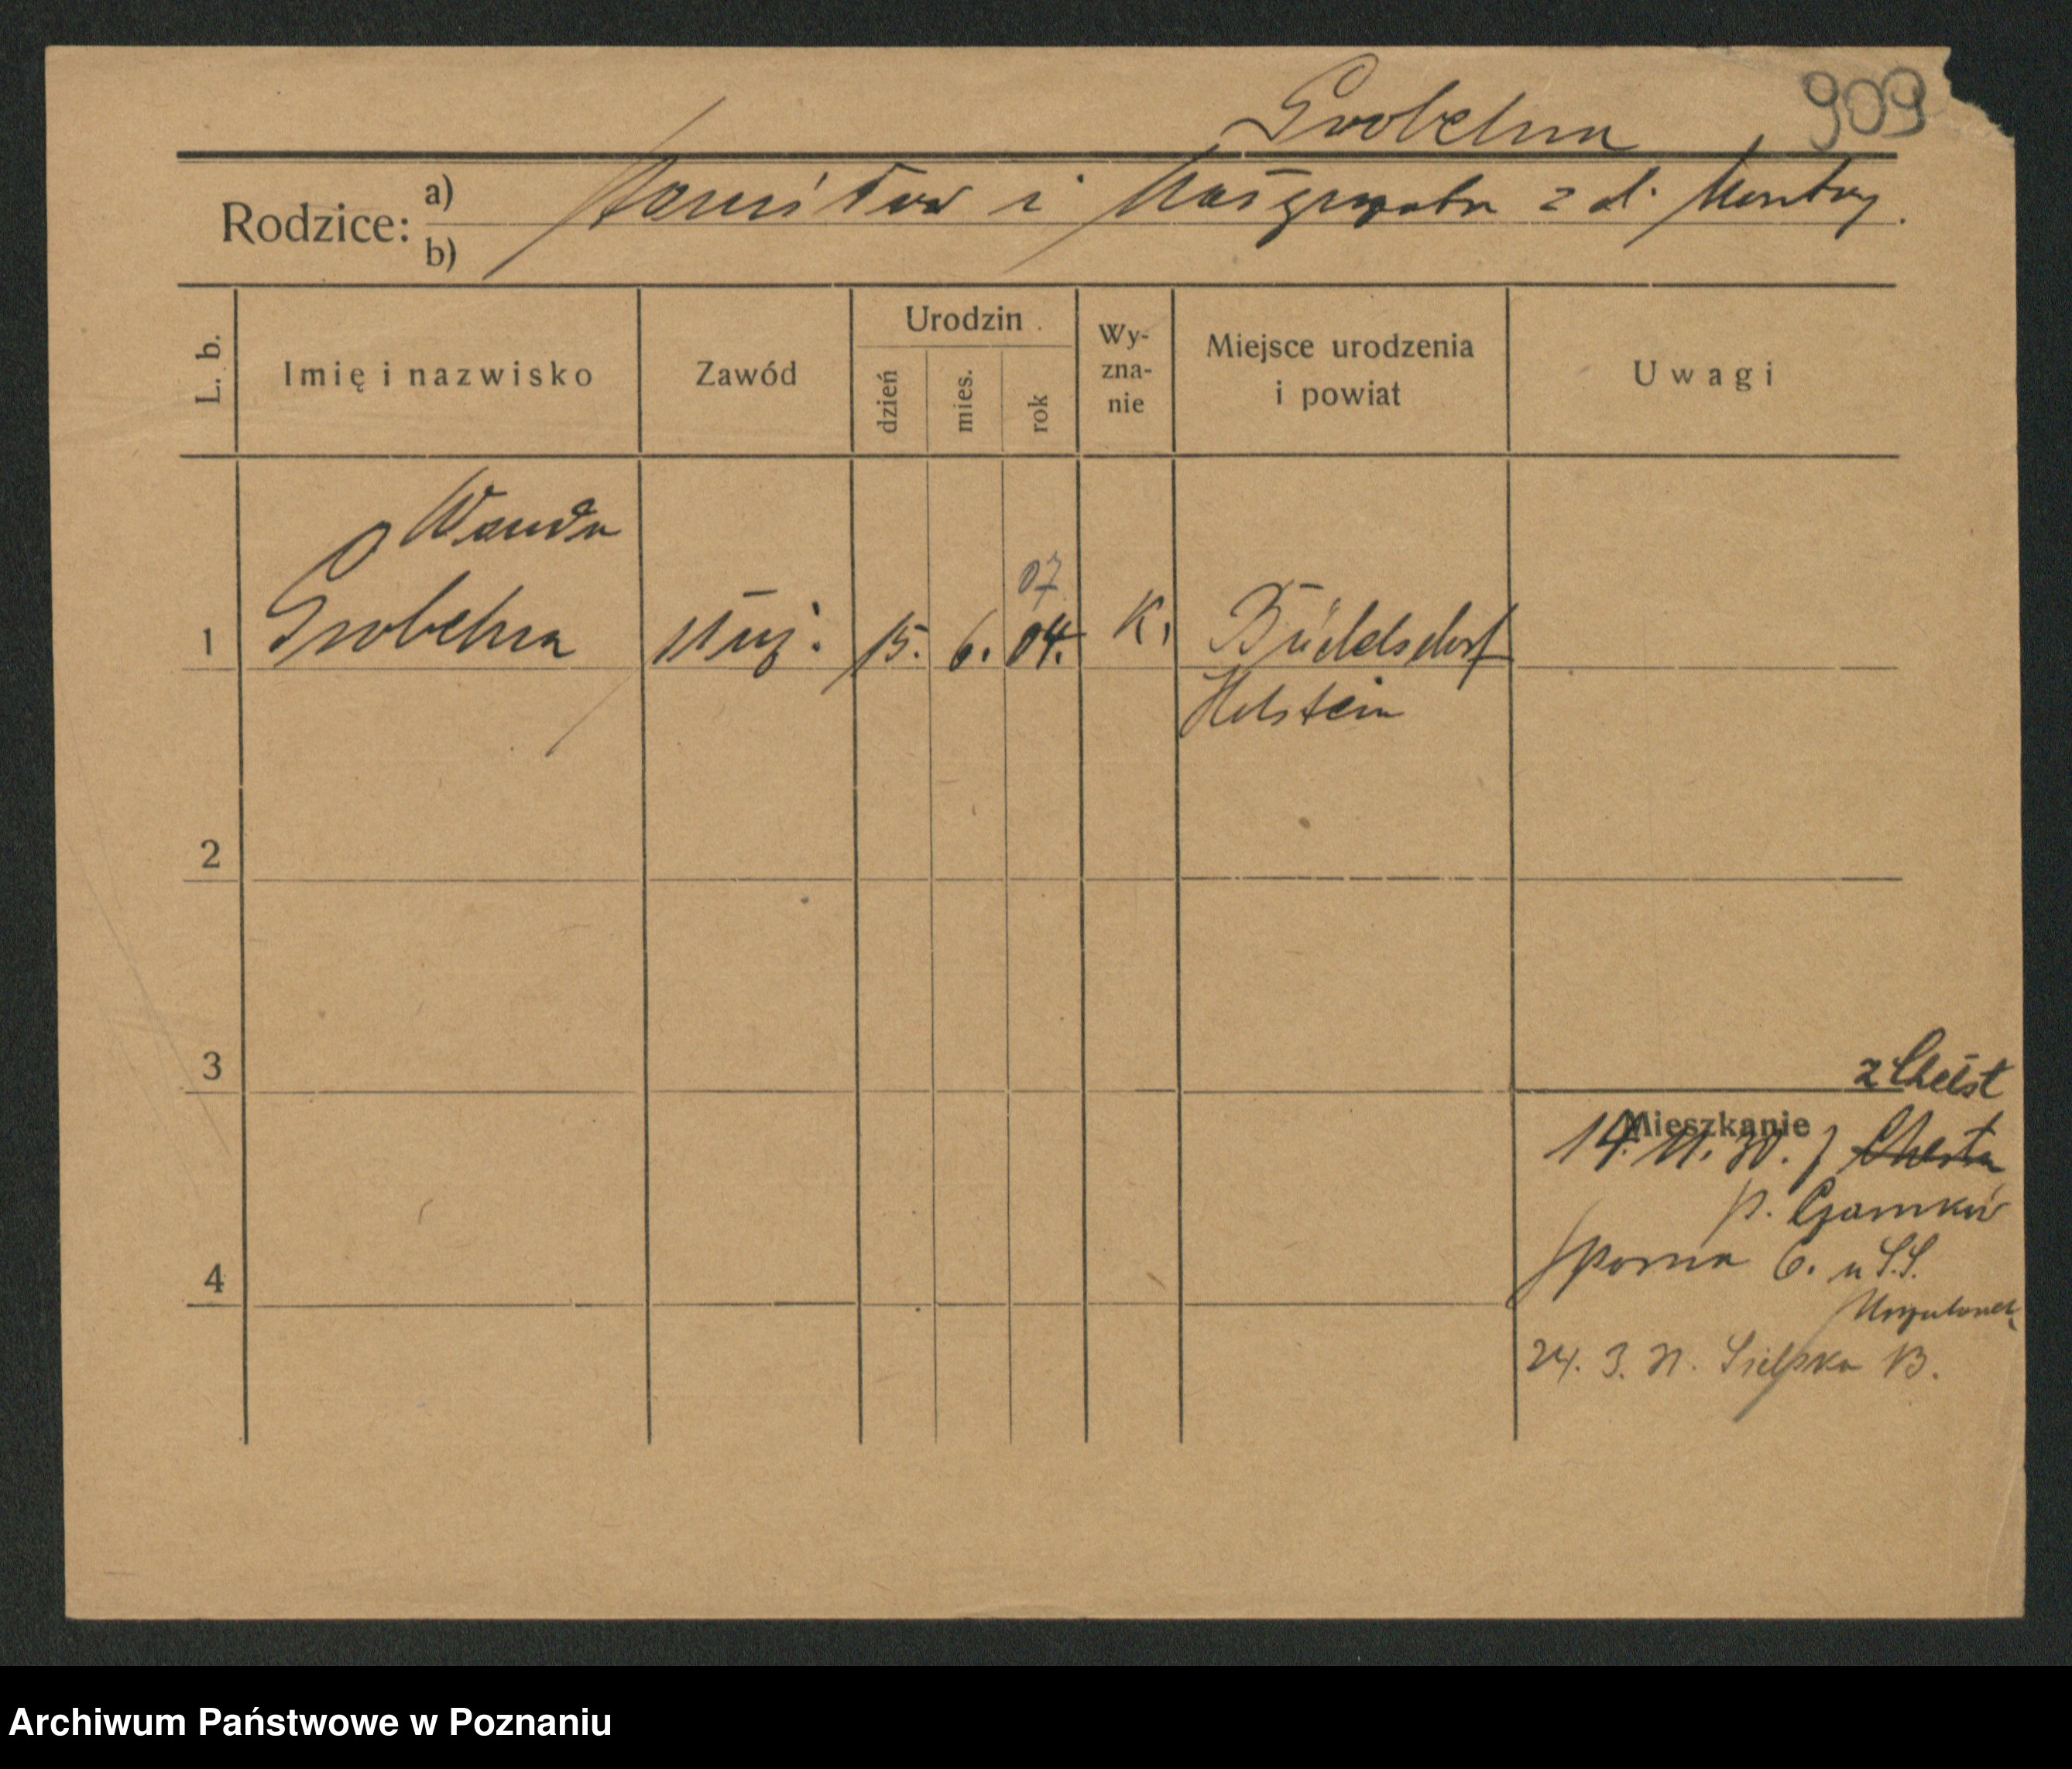 Grobelna 909
Rodzice: a) Stanisław i Małgorzata z d.
b)
L. b. Imię i nazwisko Zawód Urodzin dzień mies. rok Wy-zna-nie Miejsce urodzenia i powiat Uwagi
Wanda
07
1 Grobelna służ. 15. 6. 04. K. Büdelsdorf
Holstein
2
3
z Chełst
Mieszkanie
14. 11. 30. z Chełsta
p. Czarnków
4 Sporna 6. u S.S.
Urszulanek
24. 3. 31. Sielska 13.
Archiwum Państwowe w Poznaniu